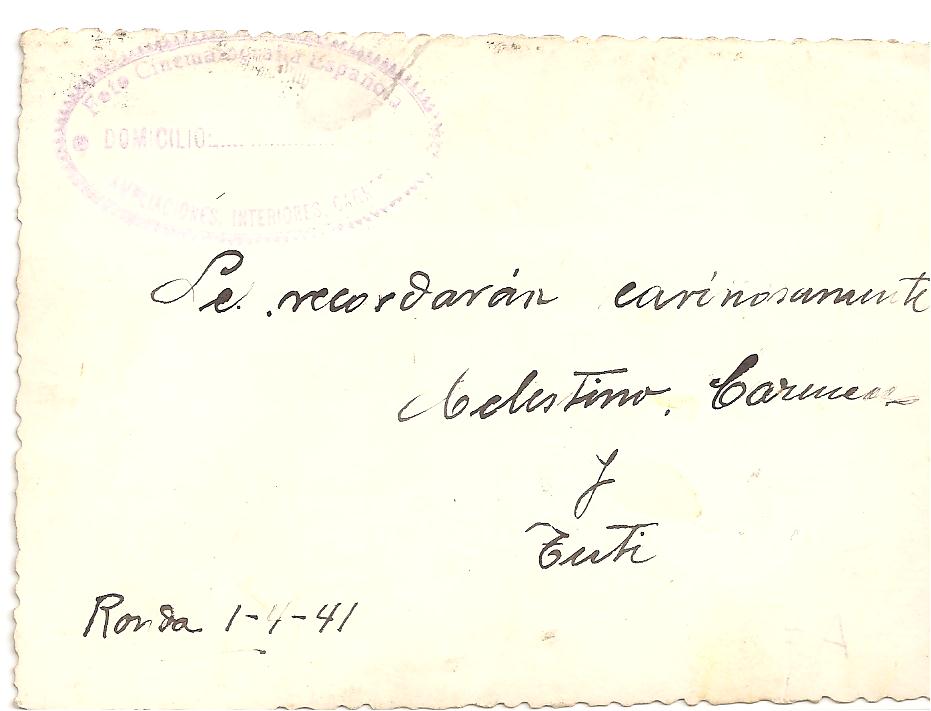 Foto Cinematografia Española
DOMICILIO
AMPLIACIONES, INTERIORES,
Se recordarán cariñosamente
Celestino, Carmen
y
Tuti
Ronda 1-4-41